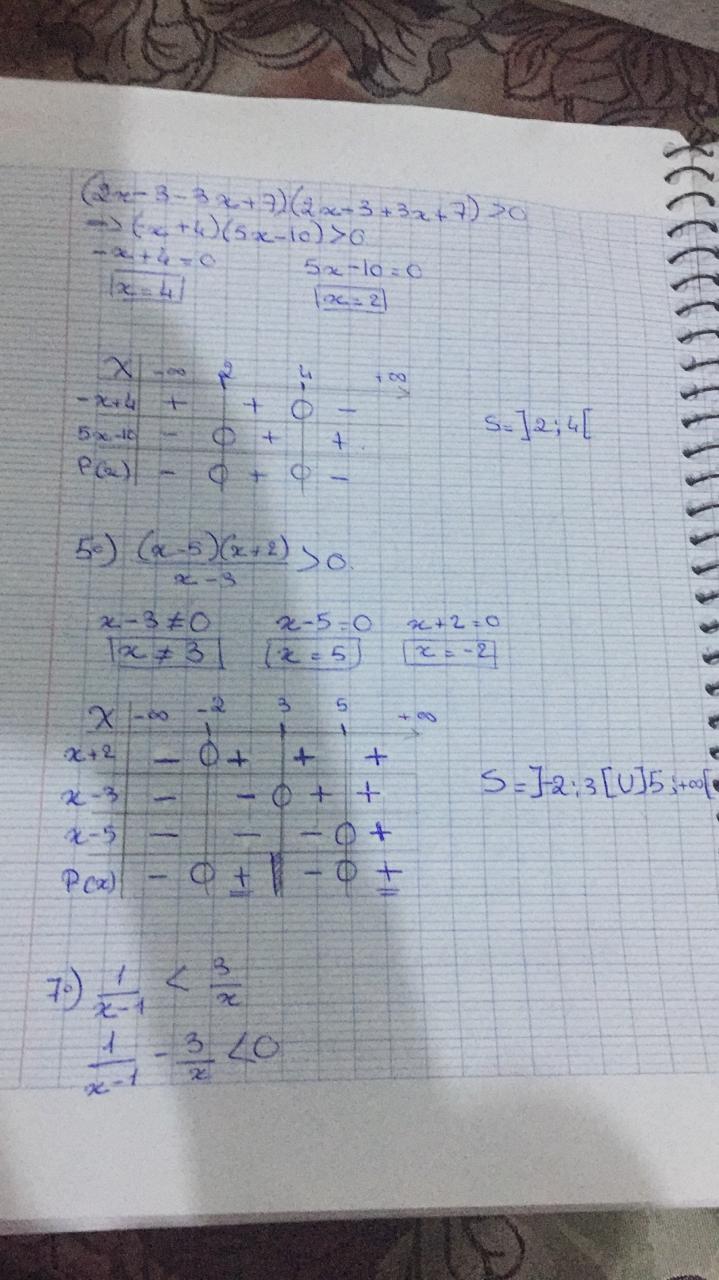 (2x-3-3x+7)(2x-3+3x+7)>0
=> (-x+4)(5x-10)>0
-x+4=0 5x-10=0
x=4 x=2
X -∞ 2 4 +∞
-x+4 + + 0 -
5x-10 - 0 + +
P(x) - 0 + 0 -
S=]2;4[
5°) (x-5)(x+2)/x-3 >0.
x-3≠0 x-5=0 x+2=0
x≠3 x=5 x=-2
X -∞ -2 3 5 +∞
x+2 - 0 + + +
x-3 - - 0 + +
x-5 - - - 0 +
P(x) - 0 + || - 0 +
S=]-2;3[U]5;+∞[
7°) 1/x-1 < 3/x
1/x-1 - 3/x <0